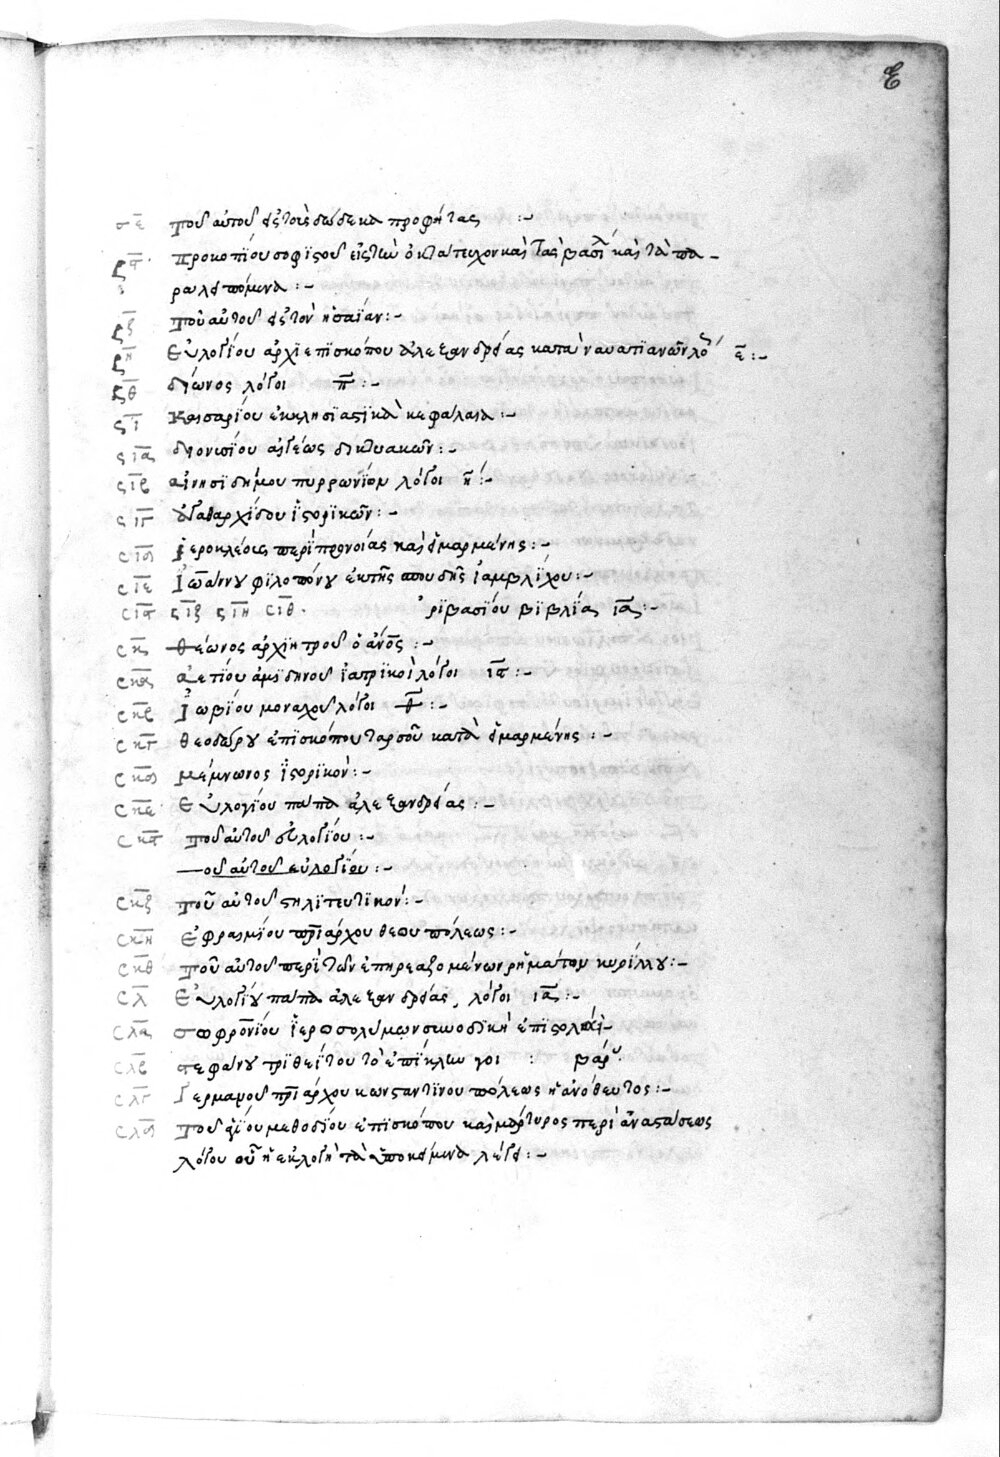 ε
σε τοῦ αὐτοῦ εἰς τοὺς δώδεκα προφήτας :-
ςς προκοπίου σοφιστοῦ εἰς τὴν ὀκτάτευχον καὶ τὰς βασιλ καὶ τὰ πα-
ραλειπόμενα :-
ςζ τοῦ αὐτοῦ εἰς τὸν ἠσαΐαν :-
ςη εὐλογίου ἀρχιεπισκόπου ἀλεξανδρείας κατὰ ναυατιανῶν λόγ ε :-
ςθ δίωνος λόγοι π :-
ςι καισαρίου ἐκκλησιαστικὰ κεφάλαια :-
ςια διονυσίου αἰγέως δικτυακῶν :-
ςιβ αἰνησιδήμου πυρρωνίων λόγοι η :-
ςιγ ἀγαθαρχίδου ἱστορικῶν :-
ςιδ ἱεροκλέους περὶ προνοίας καὶ εἱμαρμένης :-
ςιε ἰωάννου φιλοπόνου ἐκ τῆς σπουδῆς ἰαμβλίχου :-
ςις ςιζ ςιη ςιθ ὀριβασίου βιβλίας ια :-
ςκ θέωνος ἀρχιητροῦ ὁ ἄνος :-
ςκα ἀετίου ἀμιδηνοῦ ἰατρικοὶ λόγοι ις :-
ςκβ ἰωβίου μοναχοῦ λόγοι :-
ςκγ θεοδώρου ἐπισκόπου ταρσοῦ κατὰ εἱμαρμένης :-
ςκδ μέμνωνος ἱστορικόν :-
ςκε εὐλογίου πάπα ἀλεξανδρείας :-
ςκς τοῦ αὐτοῦ εὐλογίου :-
—οῦ αὐτοῦ εὐλογίου :-
ςκζ τοῦ αὐτοῦ στηλιτευτικόν :-
ςκη ἐφραιμίου πριάρχου θεουπόλεως :-
ςκθ τοῦ αὐτοῦ περὶ τῶν ἐπηρεαζομένων ῥημάτων κυρίλλου :-
ςλ εὐλογίου πάπα ἀλεξανδρείας, λόγοι ια :-
ςλα σωφρονίου ἱεροσολύμων συνοδικὴ ἐπιστολαὶ-
ςλβ στεφάνου τριθεΐτου τὸ ἐπίκλην γοι : βάρου
ςλγ γερμανοῦ πριάρχου κωνσταντινουπόλεως ἢ ἀνόθευτος :-
ςλδ τοῦ ἁγίου μεθοδίου ἐπισκόπου καὶ μάρτυρος περὶ ἀναστάσεως
λόγου οὗ ἡ ἐκλογὴ τὰ ὑποκείμενα λέγει :-